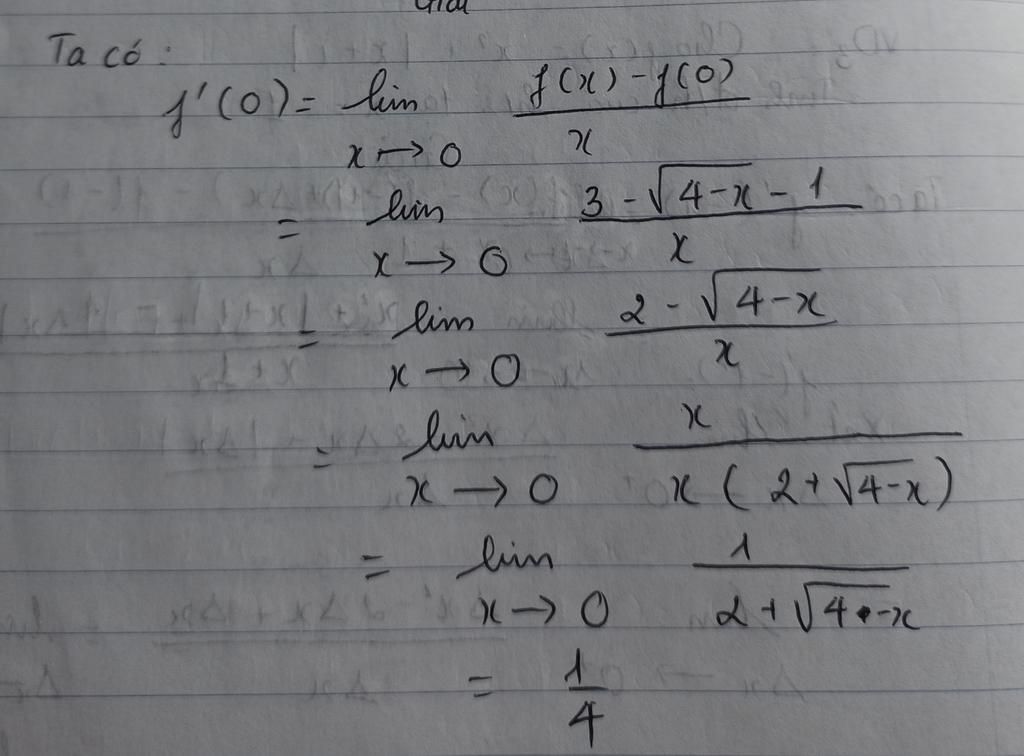 Giải
Ta có :
f'(0) = lim x→0 (f(x) - f(0))/x
= lim x→0 (3 - √(4-x) - 1)/x
= lim x→0 (2 - √(4-x))/x
= lim x→0 x/(x(2+√(4-x)))
= lim x→0 1/(2+√(4-x))
= 1/4